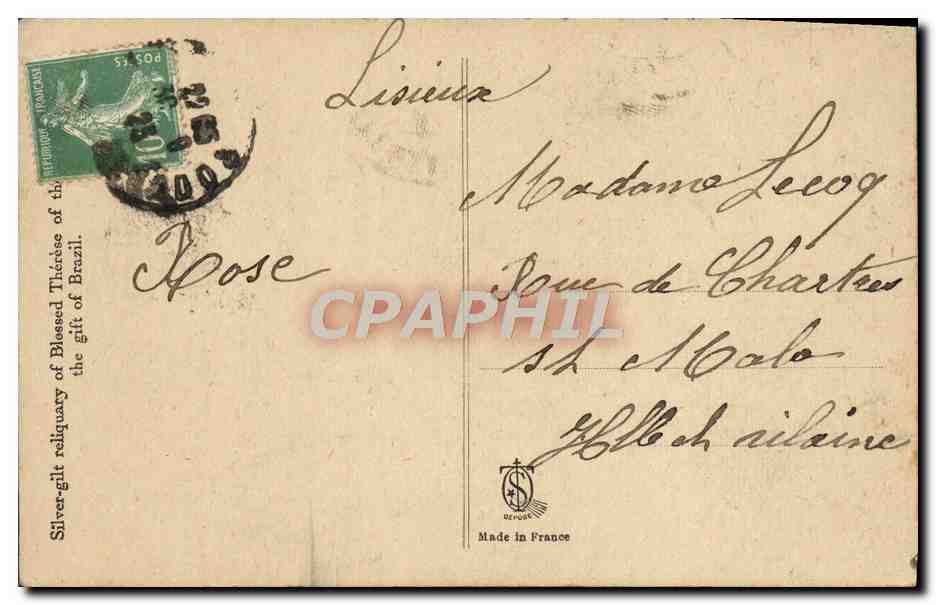 Lisieux
Madame Lecoq
Rue de Chartres
St Malo
Ille et vilaine
Rose
Silver-gilt reliquary of Blessed Thérèse of
the gift of Brazil.
REPUBLIQUE FRANÇAISE
POSTES
10
22
25
CPAPHIL
DEPOSE
Made in France